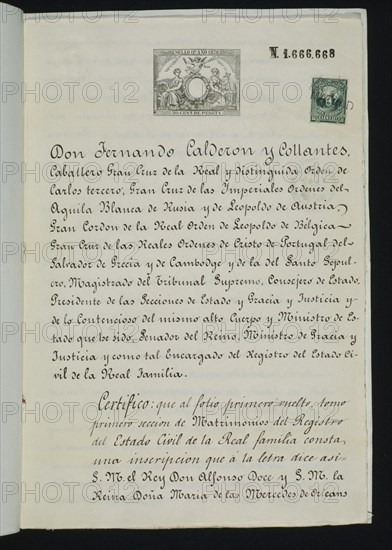 SELLO DE UN AÑO
N. 1.666.668
50 CENT. DE PESETA
Don Fernando Calderon y Collantes,
Caballero Gran Cruz de la Real y distinguida Orden de
Carlos tercero, Gran Cruz de las Imperiales Ordenes del
Aguila Blanca de Rusia y de Leopoldo de Austria,
Gran Cordon de la Real Orden de Leopoldo de Bélgica
Gran Cruz de las Reales Ordenes de Cristo de Portugal del
Salvador de Grecia y de Cambodge y de la del Santo Sepul-
cro, Magistrado del Tribunal Supremo, Consejero de Estado,
Presidente de las Secciones de Estado y Gracia y Justicia y
de lo Contencioso del mismo alto Cuerpo y Ministro de Es-
tado que he sido, Senador del Reino, Ministro de Gracia y
Justicia y como tal Encargado del Registro del Estado Ci-
vil de la Real Familia.
Certifico: que al folio primero vuelto, tomo
primero seccion de Matrimonios del Registro
del Estado Civil de la Real familia consta
una inscripcion que á la letra dice asi-
S. M. el Rey Don Alfonso Doce y S. M. la
Reina Doña Maria de las Mercedes de Orleans